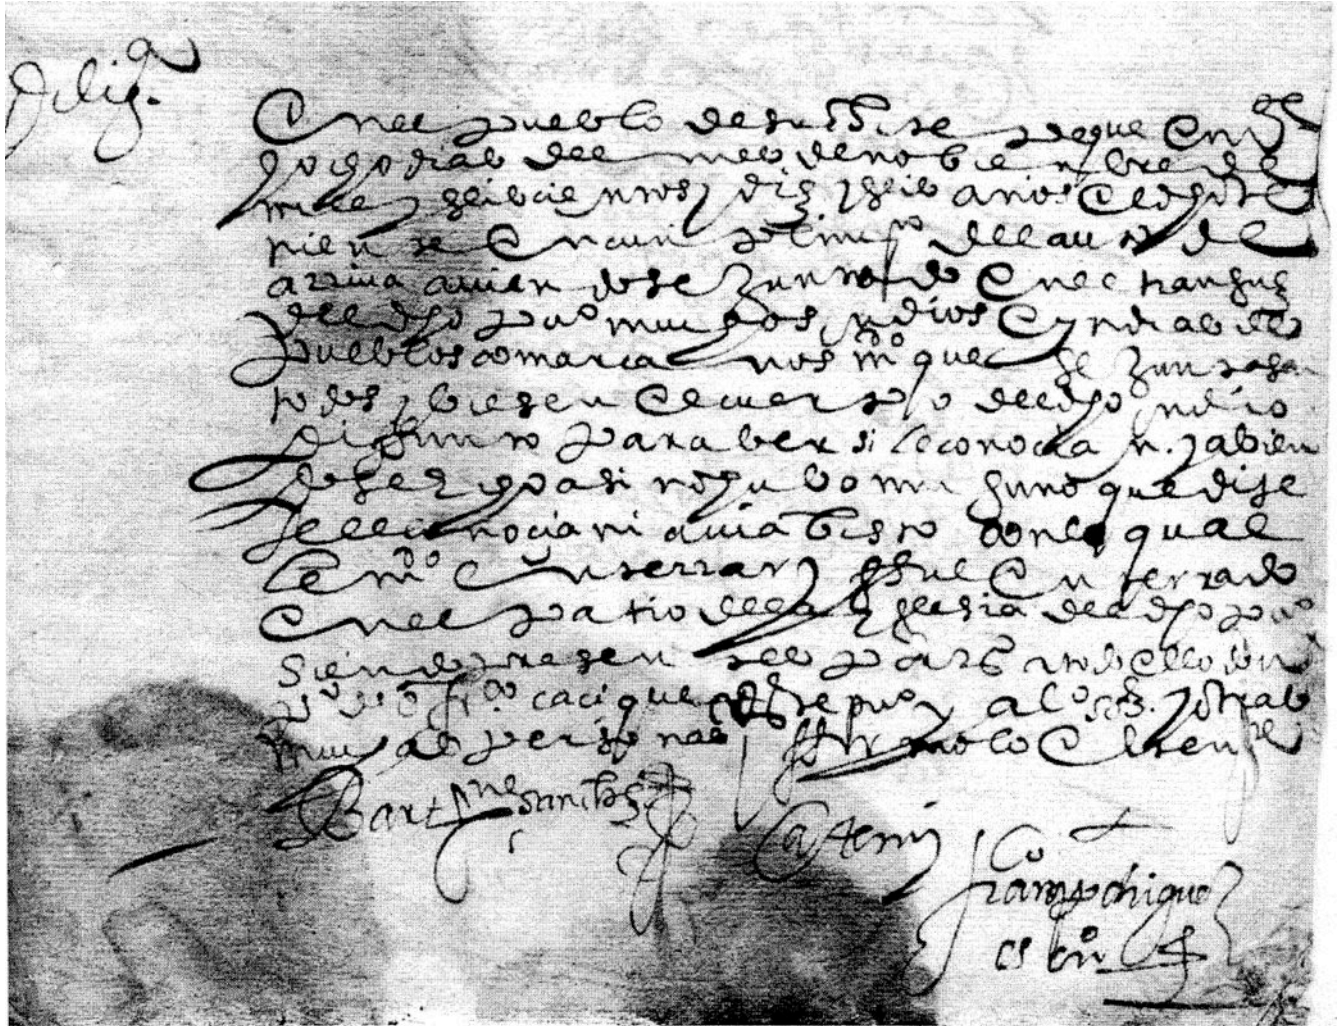 Dilig.ª
En el pueblo de
ocho dias del mes de nobienbre de
mill y seisçientos y diez y seis años el dho te
niente En cunplimi.º del auto de
arriua auiendose Juntado En el tianguez
del dho pu.º muchos yndios E yndias de los
pueblos comarcanos m.do que se Juntasen
todos y biesen el cuerpo del dho yndio
difunto para ber si le conocian. y abien
dose hecho asi no hubo ninguno que dijese
le conocia ni auia bisto con lo qual
le m.do Enterrar y fue Enterrado
En el patio de la yglesia del dho pu.º
siendo presentes
fr.co caçique deste pu.º y y otras
muchas personas y firmolo El theni.e
Bartolome Sanches
Ante mi
fran.co
es.no